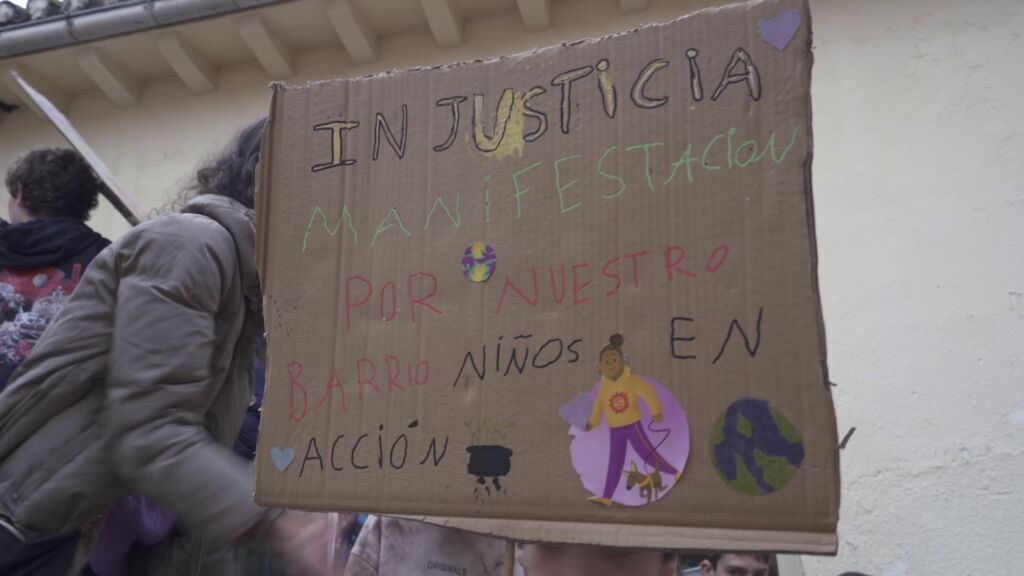 INJUSTICIA
MANIFESTACION
POR NUESTRO
BARRIO NIÑOS EN
ACCIÓN
ORIGINALS